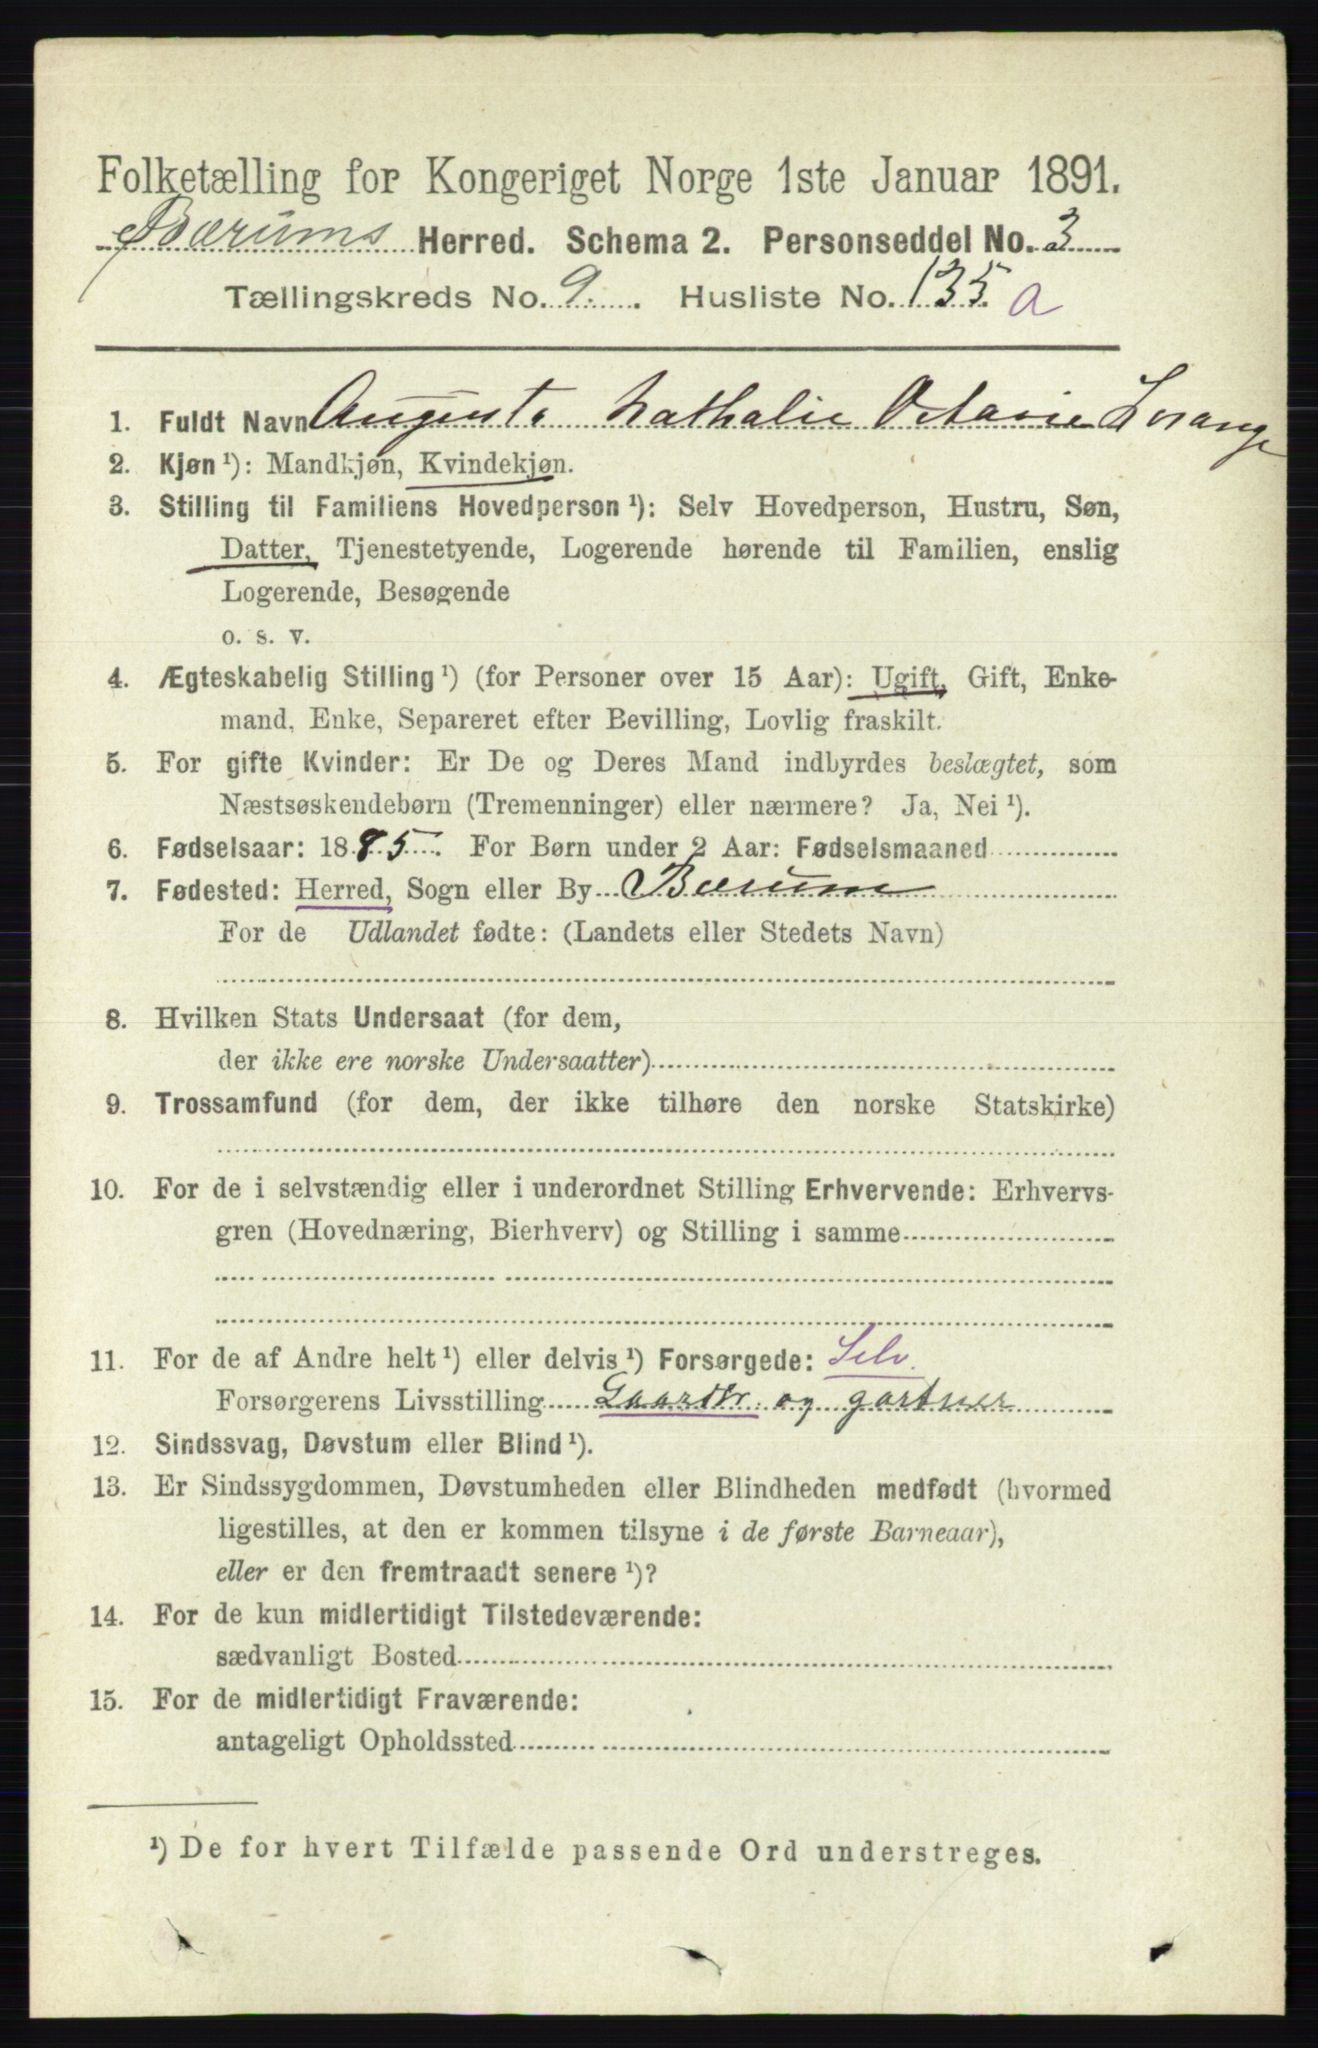 Folketælling for Kongeriget Norge 1ste Januar 1891.
Bærums Herred. Schema 2. Personseddel No. 3
Tællingskreds No. 9. Husliste No. 135 a
1. Fuldt Navn Augusta Nathalie Octavie Lorange
2. Kjøn ¹): Mandkjøn, Kvindekjøn.
3. Stilling til Familiens Hovedperson ¹): Selv Hovedperson, Hustru, Søn,
Datter, Tjenestetyende, Logerende hørende til Familien, enslig
Logerende, Besøgende
o. s. v.
4. Ægteskabelig Stilling ¹) (for Personer over 15 Aar): Ugift, Gift, Enke-
mand, Enke, Separeret efter Bevilling, Lovlig fraskilt.
5. For gifte Kvinder: Er De og Deres Mand indbyrdes beslægtet, som
Næstsøskendebørn (Tremenninger) eller nærmere? Ja, Nei ¹).
6. Fødselsaar: 1885. For Børn under 2 Aar: Fødselsmaaned
7. Fødested: Herred, Sogn eller By Bærum
For de Udlandet fødte: (Landets eller Stedets Navn)
8. Hvilken Stats Undersaat (for dem,
der ikke ere norske Undersaatter)
9. Trossamfund (for dem, der ikke tilhøre den norske Statskirke)
10. For de i selvstændig eller i underordnet Stilling Erhvervende: Erhvervs-
gren (Hovednæring, Bierhverv) og Stilling i samme
11. For de af Andre helt ¹) eller delvis ¹) Forsørgede: Selv.
Forsørgerens Livsstilling Gaardbr. og gartner
12. Sindssvag, Døvstum eller Blind ¹).
13. Er Sindssygdommen, Døvstumheden eller Blindheden medfødt (hvormed
ligestilles, at den er kommen tilsyne i de første Barneaar),
eller er den fremtraadt senere ¹)?
14. For de kun midlertidigt Tilstedeværende:
sædvanligt Bosted
15. For de midlertidigt Fraværende:
antageligt Opholdssted
¹) De for hvert Tilfælde passende Ord understreges.